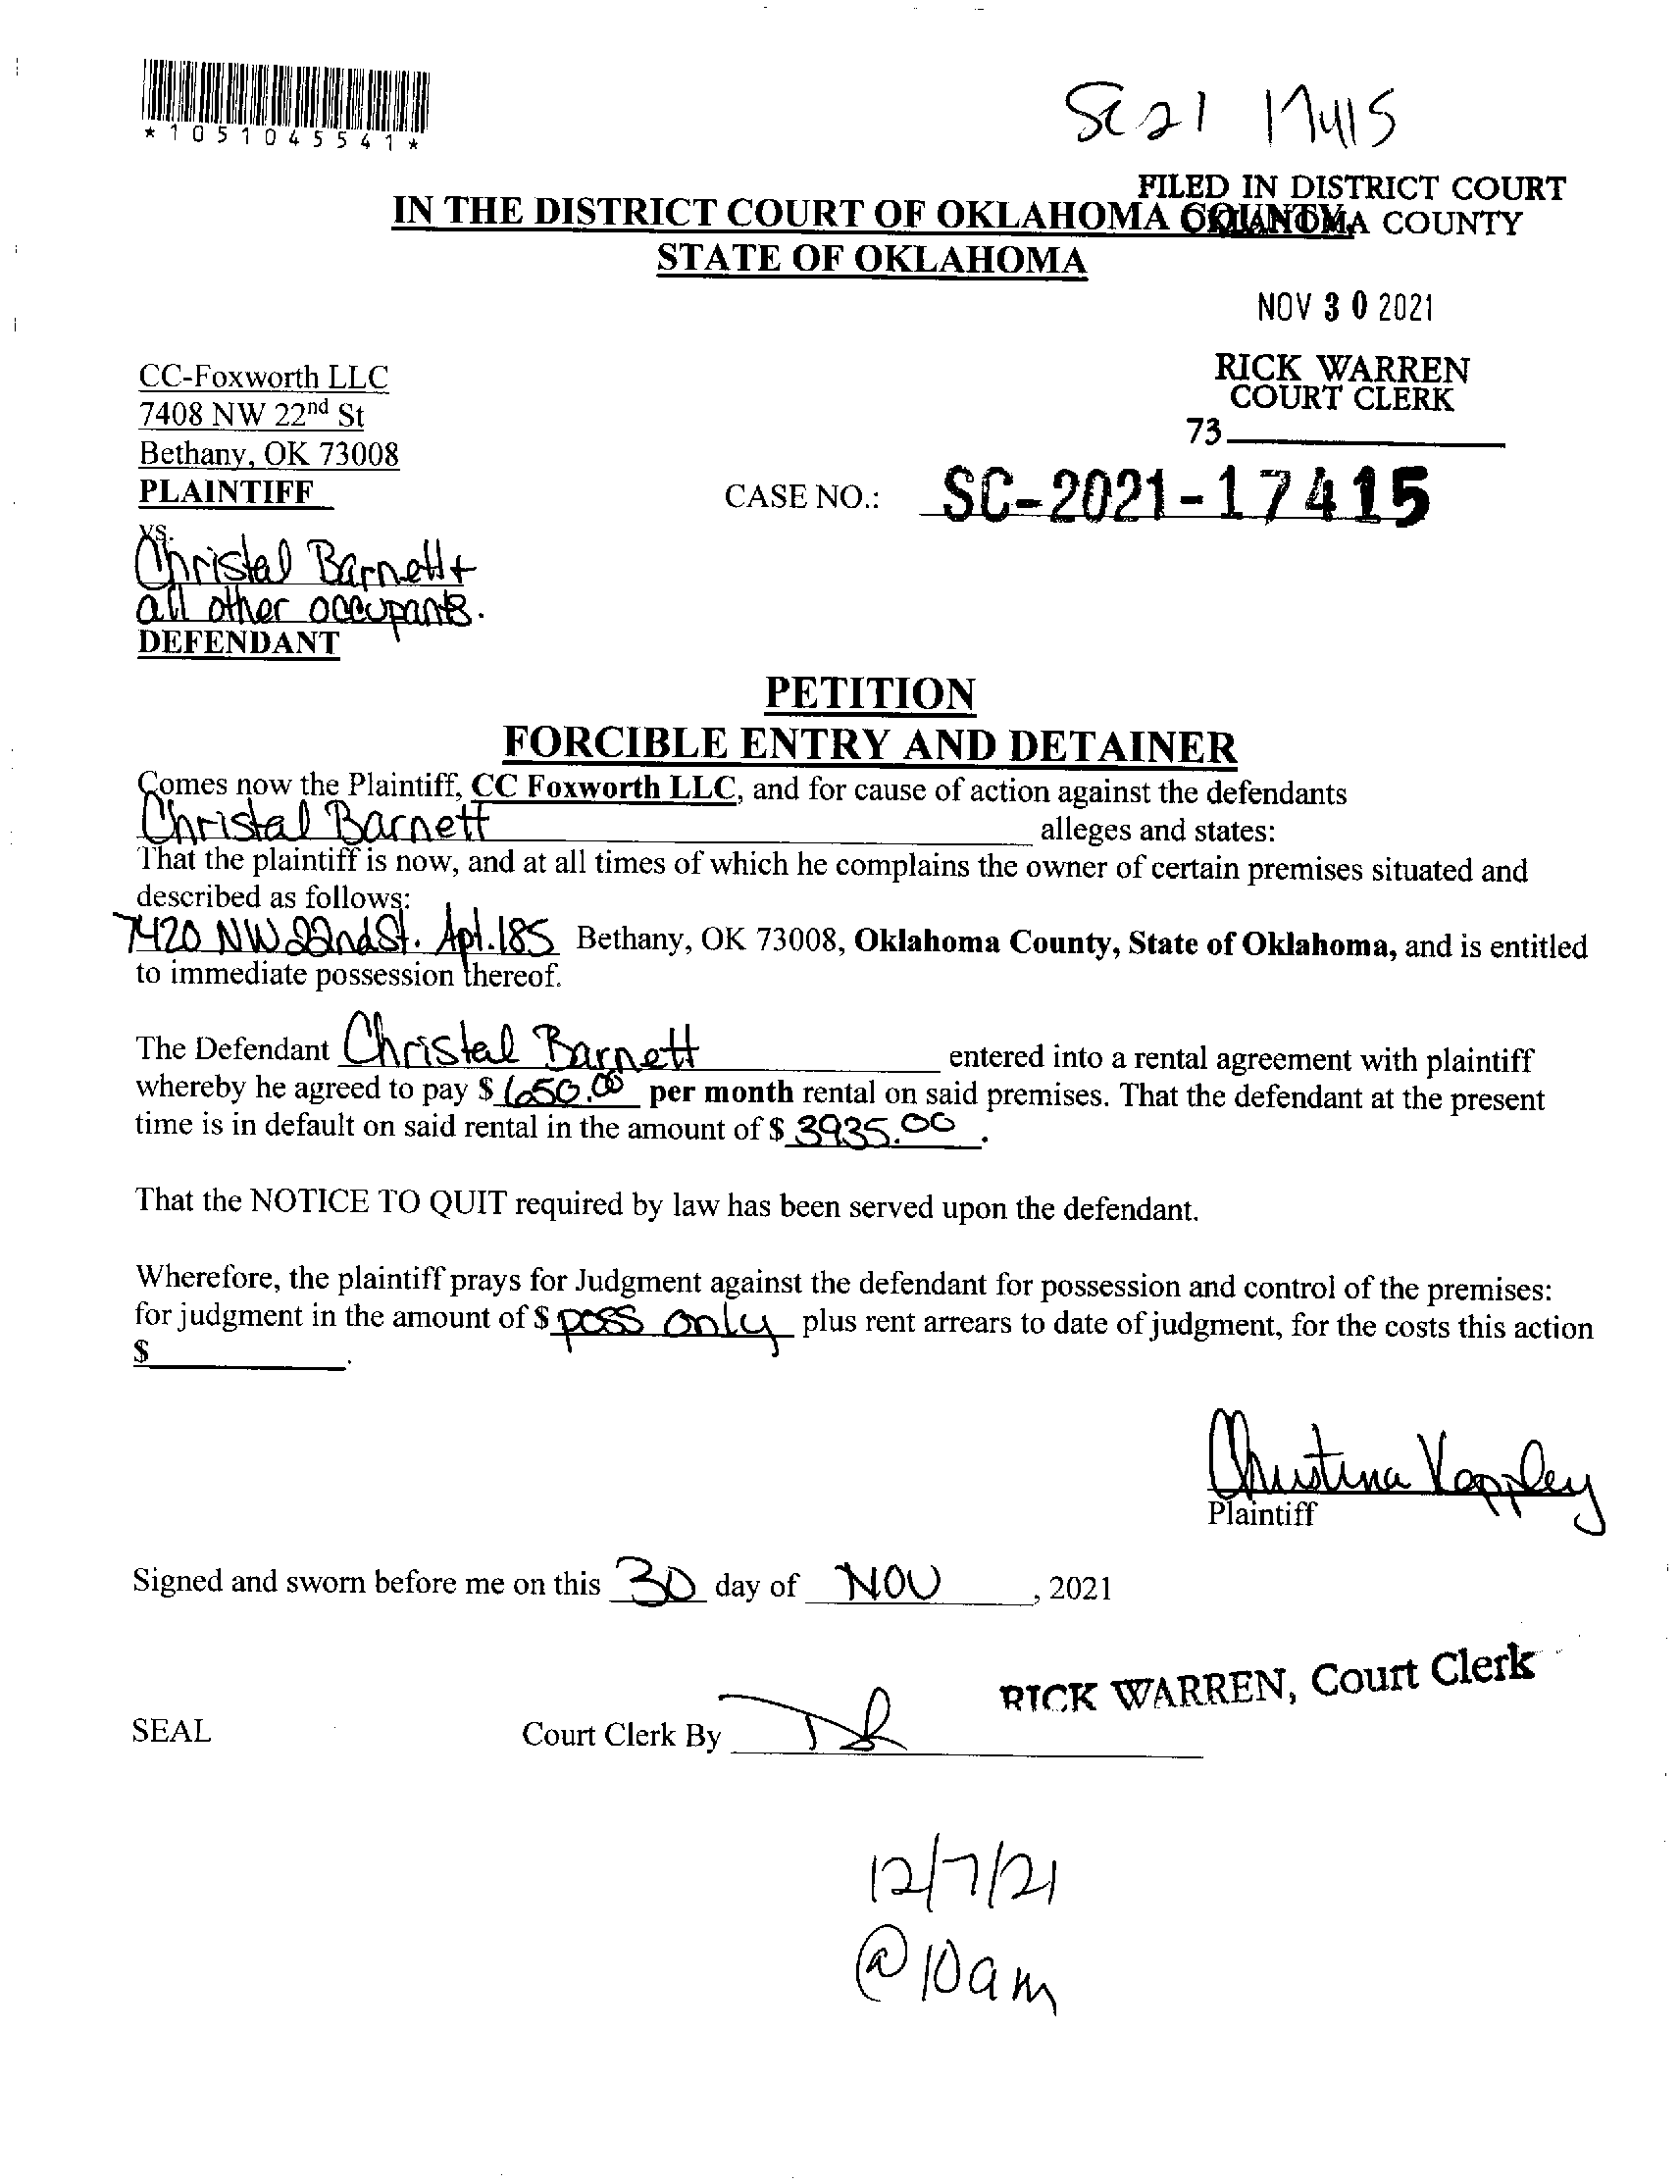 *1051045541*
SC 21 17415
FILED IN DISTRICT COURT
OKLAHOMA COUNTY
IN THE DISTRICT COURT OF OKLAHOMA COUNTY
STATE OF OKLAHOMA
NOV 30 2021
RICK WARREN
COURT CLERK
73
CC-Foxworth LLC
7408 NW 22nd St
Bethany, OK 73008
PLAINTIFF
CASE NO.: SC-2021-17415
vs.
Christal Barnett +
all other occupants.
DEFENDANT
PETITION
FORCIBLE ENTRY AND DETAINER
Comes now the Plaintiff, CC Foxworth LLC, and for cause of action against the defendants
Christal Barnett alleges and states:
That the plaintiff is now, and at all times of which he complains the owner of certain premises situated and
described as follows:
7420 NW 22nd St. Apt. 185 Bethany, OK 73008, Oklahoma County, State of Oklahoma, and is entitled
to immediate possession thereof.
The Defendant Christal Barnett entered into a rental agreement with plaintiff
whereby he agreed to pay $ 650.00 per month rental on said premises. That the defendant at the present
time is in default on said rental in the amount of $ 3935.00 .
That the NOTICE TO QUIT required by law has been served upon the defendant.
Wherefore, the plaintiff prays for Judgment against the defendant for possession and control of the premises:
for judgment in the amount of $ poss only plus rent arrears to date of judgment, for the costs this action
$ .
Christina
Plaintiff
Signed and sworn before me on this 30 day of NOV , 2021
RICK WARREN, Court Clerk
SEAL Court Clerk By
12/7/21
@ 10am